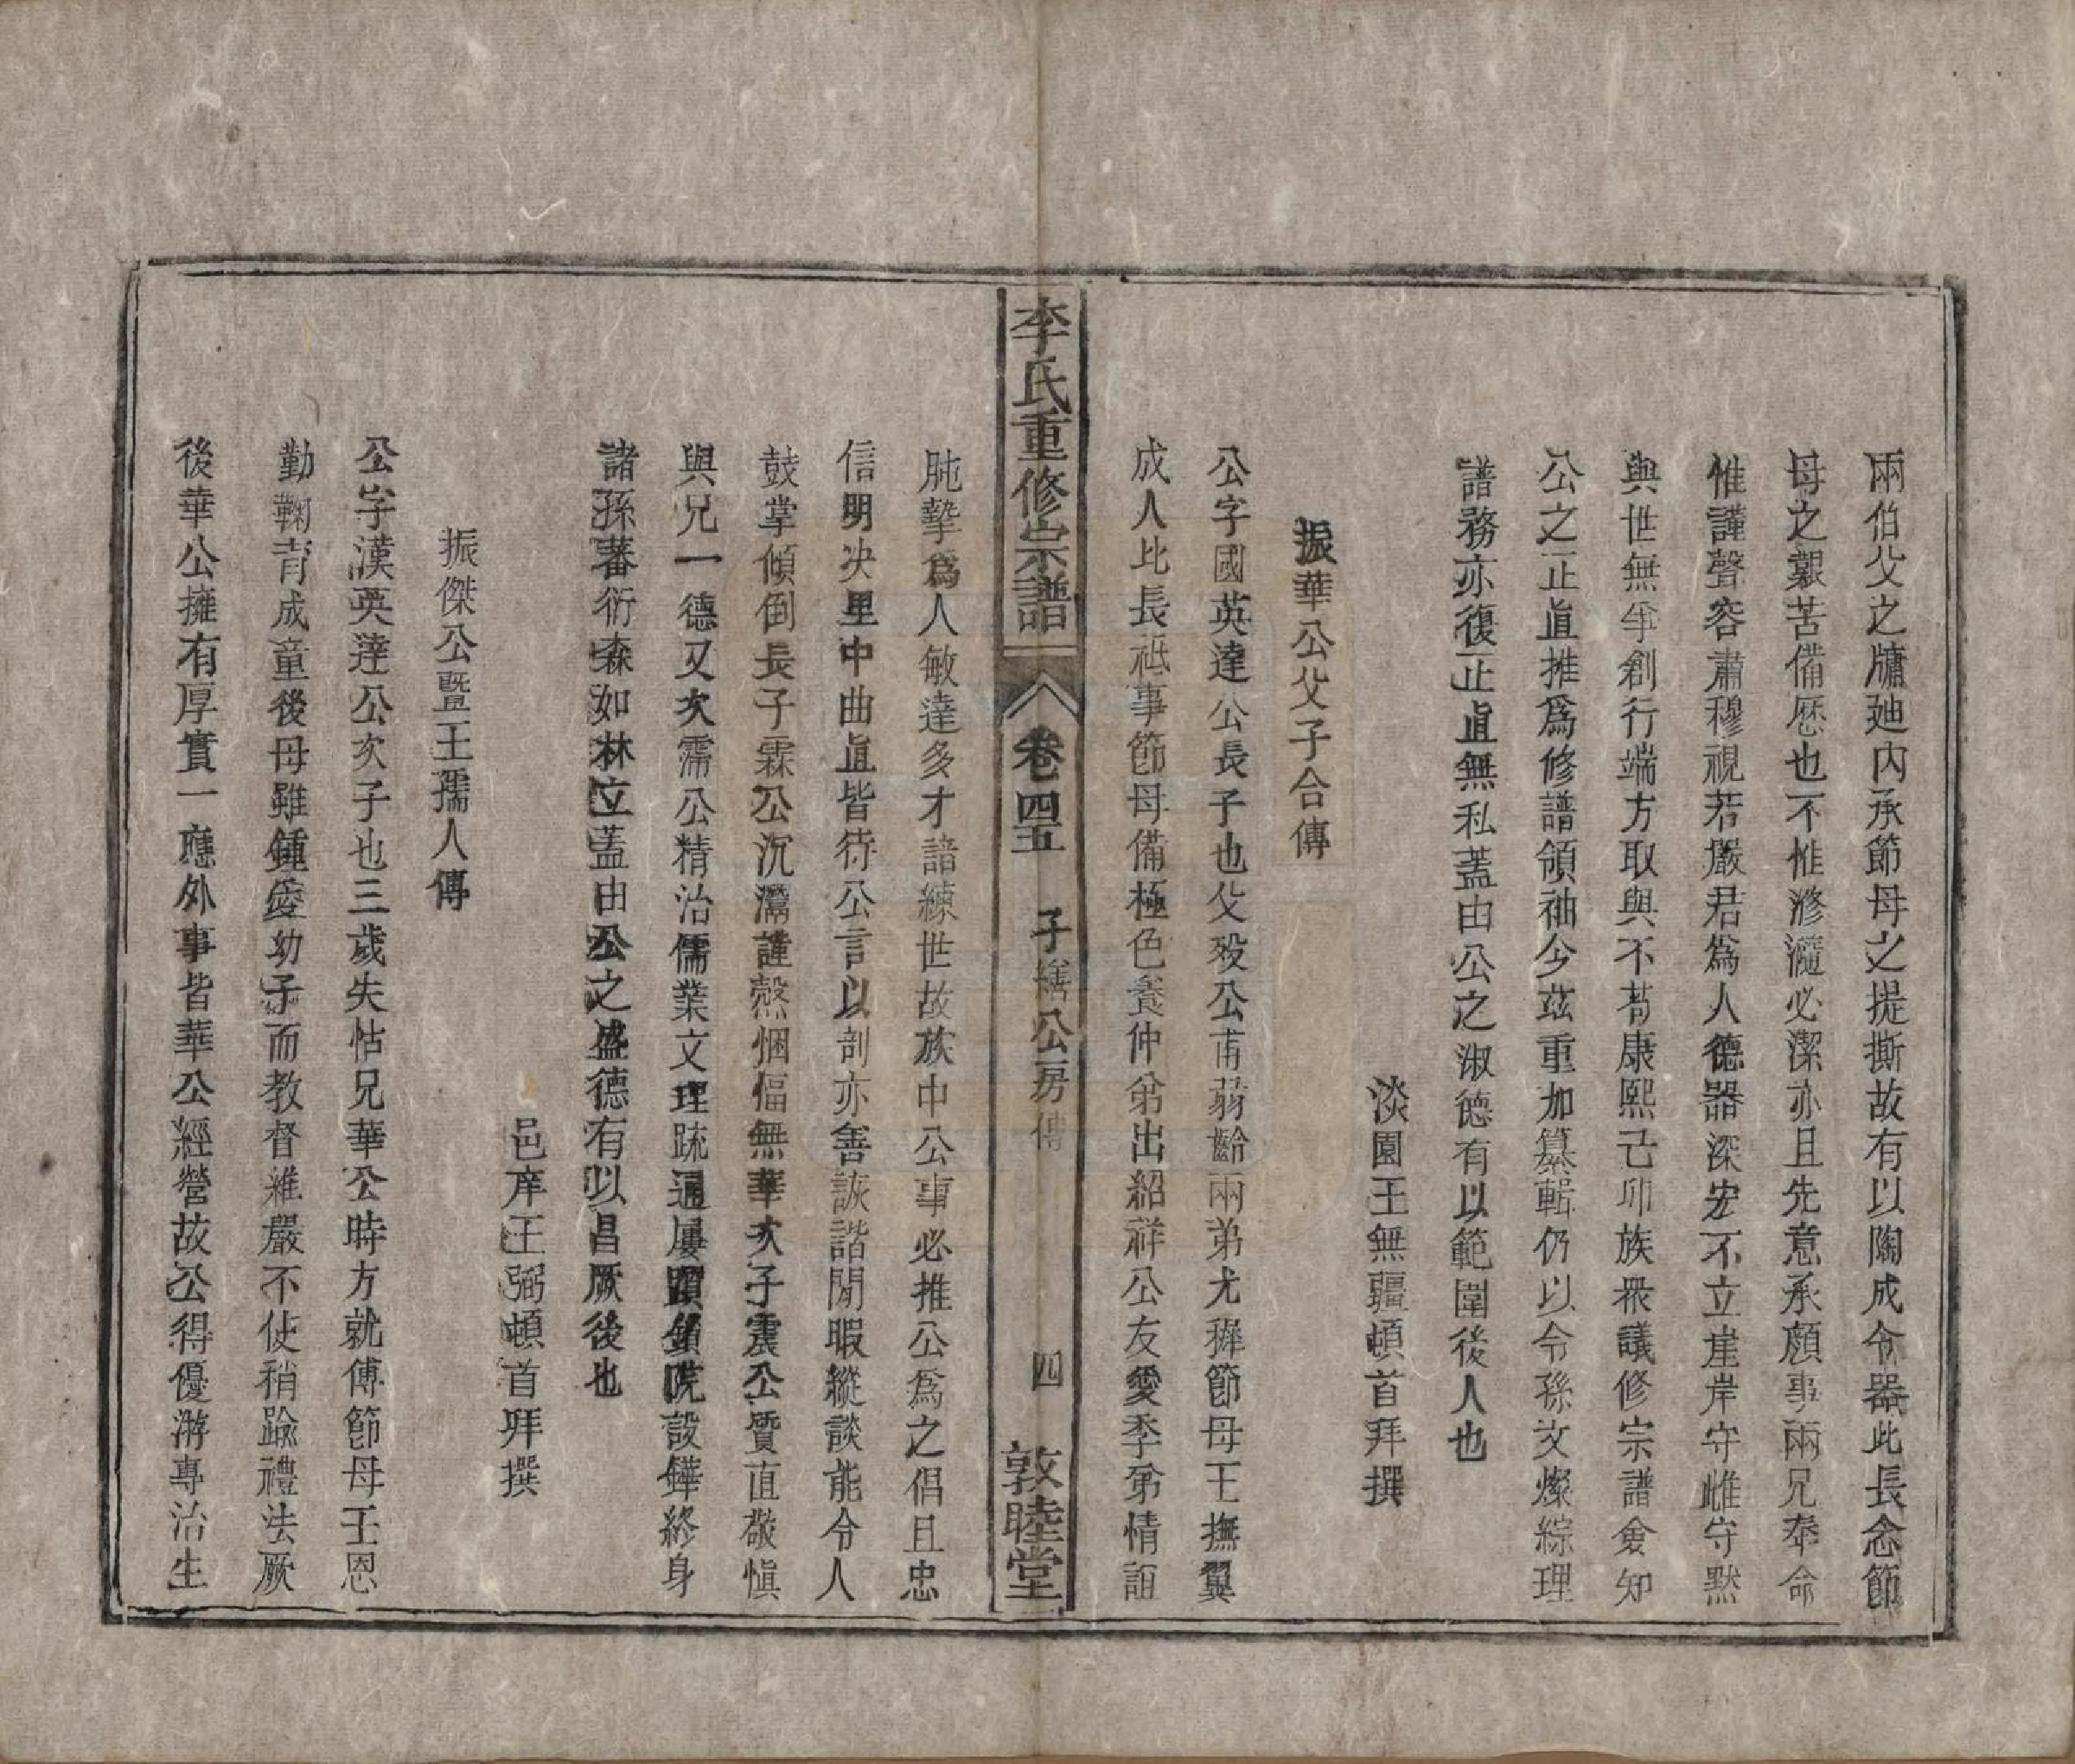 兩伯父之牗廸內承節母之提撕故有以陶成令器此長念節
母之艱苦備歷也不惟滫瀡必潔亦且先意承顏事兩兄奉命
惟謹聲容肅穆視若嚴君爲人德器深宏不立崖岸守雌守黙
與世無爭創行端方取與不苟康熙己卯族衆議修宗譜僉知
公之正直推爲修譜領袖今茲重加纂輯仍以令孫文燦綜理
譜務亦復正直無私蓋由公之淑德有以範圍後人也
淡園王無疆頓首拜撰
振華公父子合傳
公字國英逹公長子也父歿公甫弱齡兩弟尤穉節母王撫翼
成人比長祗事節母備極色養仲弟出紹祥公友愛季弟情誼
李氏重修宗譜 卷四五 子 公房傳 四 敦睦堂
肫摯爲人敏達多才諳練世故族中公事必推公爲之倡且忠
信明决里中曲直皆待公言以剖亦善詼諧閒暇縱談能令人
鼓掌傾倒長子霖公沉潛謹愨悃愊無華次子震公質直敬愼
與兄一德又次霈公精治儒業文理疏通屢躓鎖院設鏵終身
諸孫蕃衍森如林立蓋由公之盛德有以昌厥後也
邑庠王弼頓首拜撰
振傑公暨王孺人傳
公字漢英逹公次子也三歲失怙兄華公時方就傅節母王恩
勤鞠育成童後母雖鍾愛幼子而教督維嚴不使稍踰禮法厥
後華公擁有厚實一應外事皆華公經營故公得優游專治生